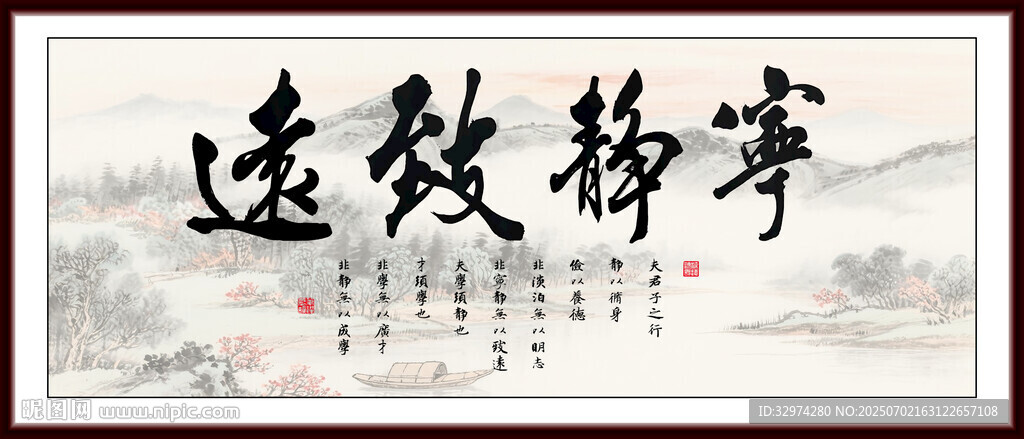 寧静致遠
夫君子之行
静以脩身
儉以養德
非淡泊無以明志
非寧静無以致遠
夫學須静也
才須學也
非學無以廣才
非静無以成學
昵图网 www.nipic.com
ID:32974280 NO:20250702163122657108